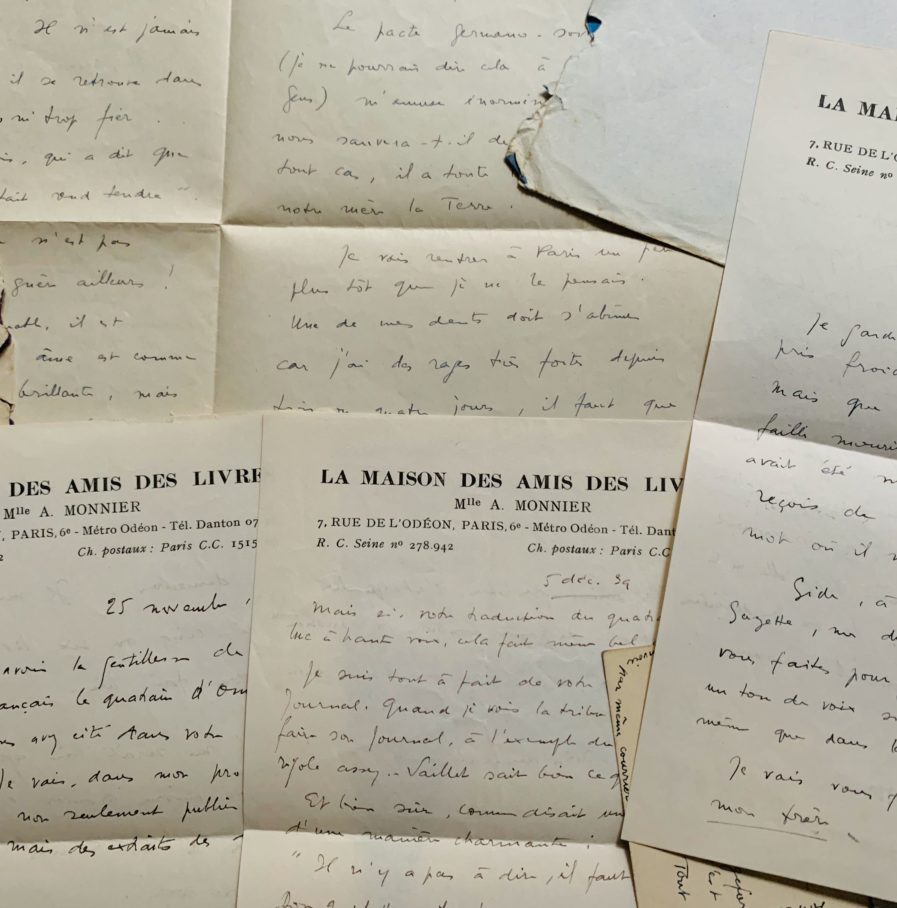 Il n'est jamais
il se retrouve dans
ni trop fier.
qui a dit que
rend tendre"
n'est pas
guère ailleurs !
il est
âme est comme
brillante, mais
Le pacte germano-sov
(je ne pourrais dire cela à
Gens) m'amuse énormém
nous sauvera-t-il de
tout cas, il a toute
notre mère la Terre.
Je vais rentrer à Paris un peu
plus tôt que je ne le pensais.
Une de mes dents doit s'abîmer
car j'ai des rages très fortes depuis
trois ou quatre jours, il faut que
DES AMIS DES LIVRE
Mlle A. MONNIER
PARIS, 6e - Métro Odéon - Tél. Danton 07
Ch. postaux : Paris C.C. 1515
25 novembre
avoir la gentillesse de
ançais le quatrain d'Om
avez cité dans votre
Je vais, dans mon pro
non seulement publier
mais des extraits des
LA MAISON DES AMIS DES LIV
Mlle A. MONNIER
7, RUE DE L'ODÉON, PARIS, 6e - Métro Odéon - Tél. Dant
R. C. Seine no 278.942 Ch. postaux : Paris C.C
5 déc. 39
Mais si, votre traduction du quatr
luc à haute voix, cela fait même bel
Je suis tout à fait de votre
Journal. Quand je vois la tribu
faire son Journal, à l'exemple du
assez.. Vaillet sait bien ce q
Et bien sûr, comme disait un
d'une manière charmante :
"Il n'y a pas à dire, il faut
par même courrier
Tout
LA MAI
7, RUE DE L'O
R. C. Seine no
Je gard
pris froid
mais que
failli mourir
avait été
reçois de
mot où il
Gide, à
Gazette,
vous faites pour
un ton de voix
même que dans
Je vais vous
mon frère